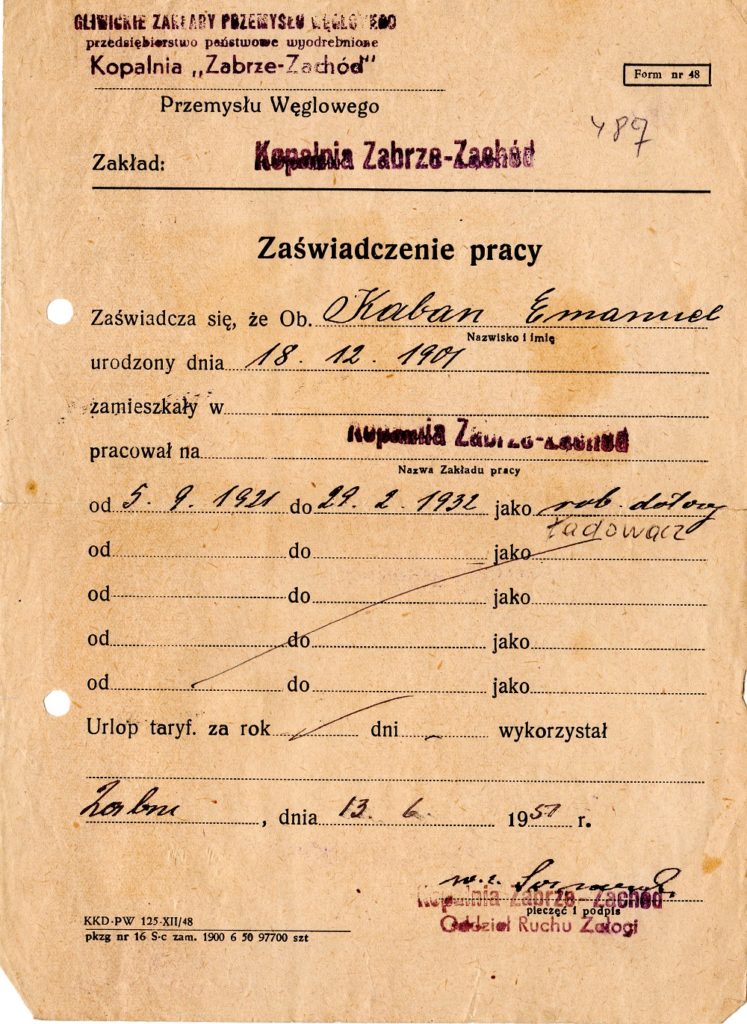 GLIWICKIE ZAKŁADY PRZEMYSŁU WĘGLOWEGO
przedsiębiorstwo państwowe wyodrebnione
Kopalnia „Zabrze-Zachód"
Form nr 48
Przemysłu Węglowego
487
Zakład: Kopalnia Zabrze-Zachód
Zaświadczenie pracy
Zaświadcza się, że Ob. Kaban Emanuel
Nazwisko i imię
urodzony dnia 18. 12. 1901
zamieszkały w
pracował na Kopalnia Zabrze-Zachód
Nazwa Zakładu pracy
od 5. 9. 1921 do 29. 2. 1932 jako rob. dołowy
ładowacz
od do jako
od do jako
od do jako
od do jako
Urlop taryf. za rok dni - wykorzystał
Zabrze, dnia 13. 6. 1951 r.
w.z.
Kopalnia Zabrze-Zachód
pieczęć i podpis
Oddział Ruchu Załogi
KKD-PW 125-XII/48
pkzg nr 16 S-c zam. 1900 6 50 97700 szt